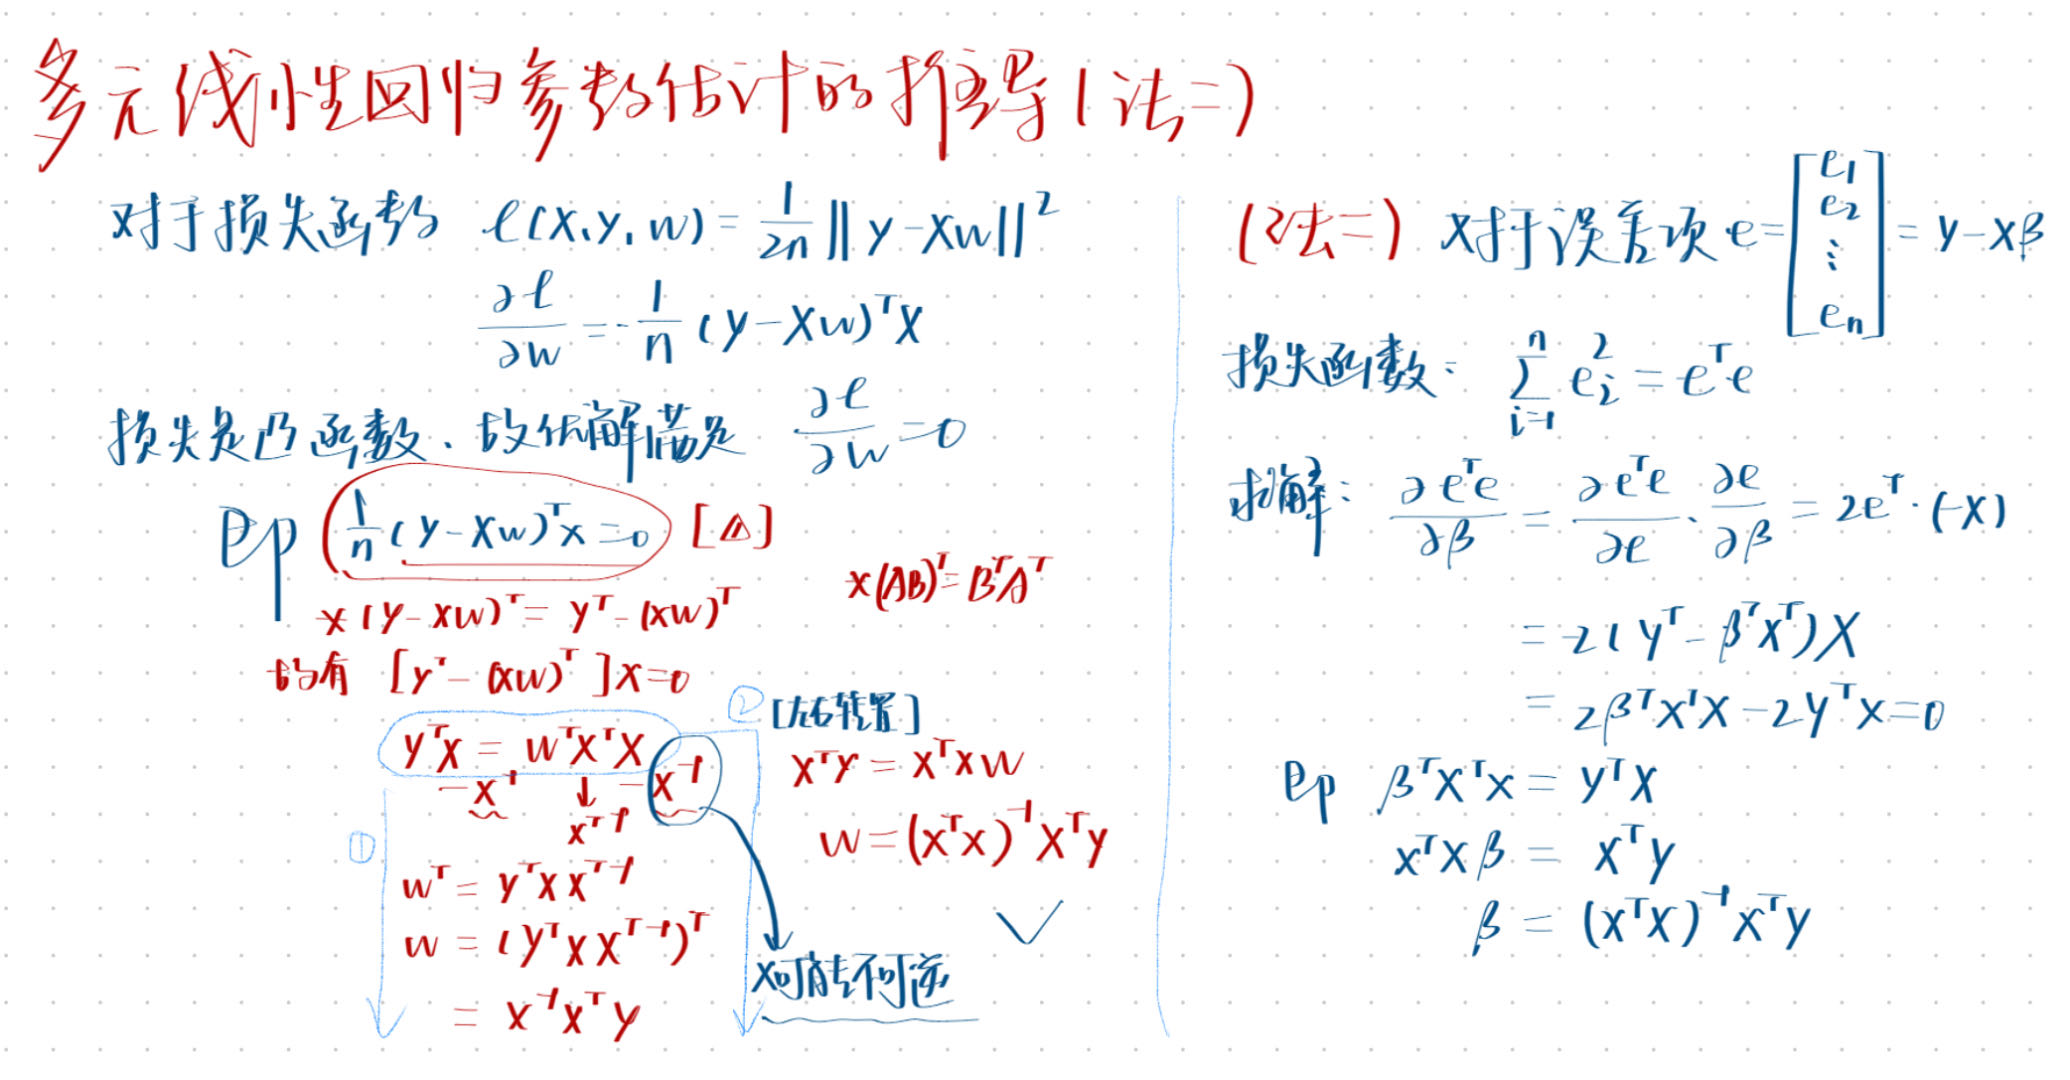 多元线性回归参数估计的推导(法二)
对于损失函数 ℓ(X,y,w)=1/2n ||y-Xw||²
∂ℓ/∂w=-1/n (y-Xw)ᵀX
损失是凸函数、故优解满足 ∂ℓ/∂w=0
即 (1/n (y-Xw)ᵀX=0) [△]
x(AB)ᵀ=BᵀAᵀ
x (y-Xw)ᵀ=yᵀ-(Xw)ᵀ
故有 [yᵀ-(Xw)ᵀ]X=0
yᵀX=wᵀXᵀX
-X⁻¹ ↓ -X⁻¹
Xᵀ⁻¹
①
wᵀ=yᵀXXᵀ⁻¹
w=(yᵀXXᵀ⁻¹)ᵀ
=X⁻¹Xᵀy
② [左右转置]
XᵀY=XᵀXw
w=(XᵀX)⁻¹Xᵀy
✓
X可能不可逆
(法二) 对于误差项 e=[e₁ e₂ ⋮ eₙ]=y-Xβ
损失函数: ∑ⁿᵢ₌₁ eᵢ²=eᵀe
求解: ∂eᵀe/∂β=∂eᵀe/∂e·∂e/∂β=2eᵀ·(-X)
=-2(yᵀ-βᵀXᵀ)X
=2βᵀXᵀX-2yᵀX=0
即 βᵀXᵀX=yᵀX
XᵀXβ=Xᵀy
β=(XᵀX)⁻¹Xᵀy